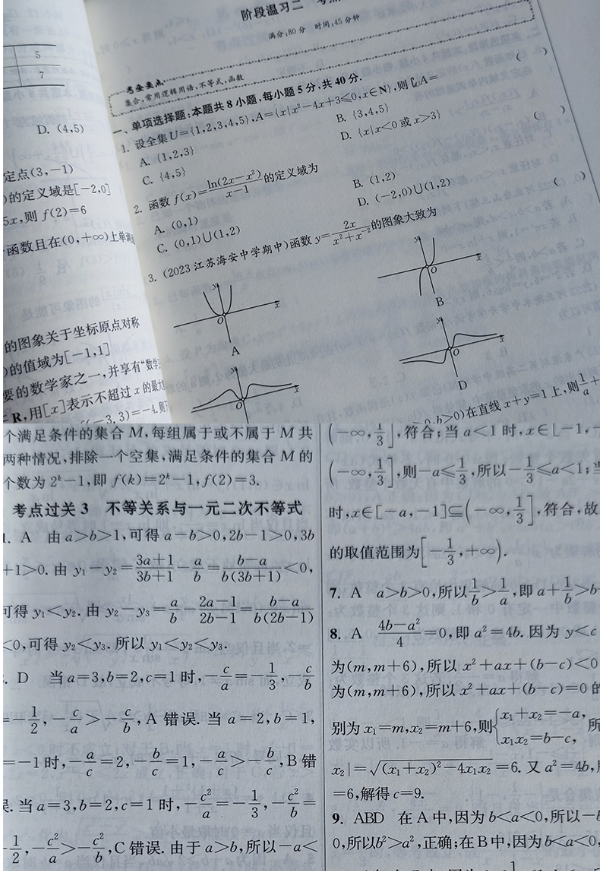 5
7
D. (4,5)
定点(3,-1)
的定义域是[-2,0]
5x,则 f(2)=6
函数且在(0,+∞)上单调
的图象关于坐标原点对称
的值域为[-1,1]
要的数学家之一,并享有"数学
R,用[x]表示不超过 x 的最大
阶段温习二
满分:80分 时间:45分钟
考查要点
集合、常用逻辑用语、不等式、函数
一、单项选择题:本题共8小题,每小题5分,共40分.
1. 设全集U={1,2,3,4,5},A={x|x²-4x+3≤0,x∈N},则∁UA=
( )
A. {1,2,3}
B. {3,4,5}
C. {4,5}
D. {x|x<0或x>3}
2. 函数 f(x)=ln(2x-x²)/(x-1)的定义域为
( )
A. (0,1)
B. (1,2)
C. (0,1)∪(1,2)
D. (-2,0)∪(1,2)
3. (2023江苏海安中学期中)函数 y=2x/(x²+x⁻²)的图象大致为
( )
y
O
x
A
y
O
x
B
y
O
x
y
O
x
D
b>0)在直线x+y=1上,则1/a+
个满足条件的集合 M,每组属于或不属于 M 共
两种情况,排除一个空集,满足条件的集合 M 的
个数为 2ᵏ-1,即 f(k)=2ᵏ-1,f(2)=3.
考点过关 3 不等关系与一元二次不等式
1. A 由 a>b>1,可得 a-b>0,2b-1>0,3b
+1>0.由 y₁-y₂=(3a+1)/(3b+1)-a/b=(b-a)/(b(3b+1))<0,
可得 y₁<y₂.由 y₂-y₃=a/b-(2a-1)/(2b-1)=(b-a)/(b(2b-1))
<0,可得 y₂<y₃.所以 y₁<y₂<y₃.
. D 当 a=3,b=2,c=1 时,-c/a=-1/3,-c/b
=-1/2,-c/a>-c/b,A 错误.当 a=2,b=1,
=-1 时,-a/c=2,-b/c=1,-a/c>-b/c,B 错
误.当 a=3,b=2,c=1 时,-c²/a=-1/3,-c²/b=
-1/2,-c²/a>-c²/b,C 错误.由于 a>b,所以-a<
(-∞,1/3],符合;当 a<1 时,x∈[-1,-
(-∞,1/3],则-a≤1/3,所以-1/3≤a<1;当
时,x∈[-a,-1]⊆(-∞,1/3],符合,故
的取值范围为[-1/3,+∞).
7. A a>b>0,所以1/b>1/a,即 a+1/b>b+
8. A (4b-a²)/4=0,即 a²=4b.因为 y<c
为(m,m+6),所以 x²+ax+(b-c)<0
为(m,m+6),所以 x²+ax+(b-c)=0的
别为 x₁=m,x₂=m+6,则{x₁+x₂=-a, x₁x₂=b-c, 所
x₂|=√((x₁+x₂)²-4x₁x₂)=6.又 a²=4b,
=6,解得 c=9.
9. ABD 在 A 中,因为 b<a<0,所以-b
0,所以b²>a²,正确;在 B 中,因为 b<a<0,